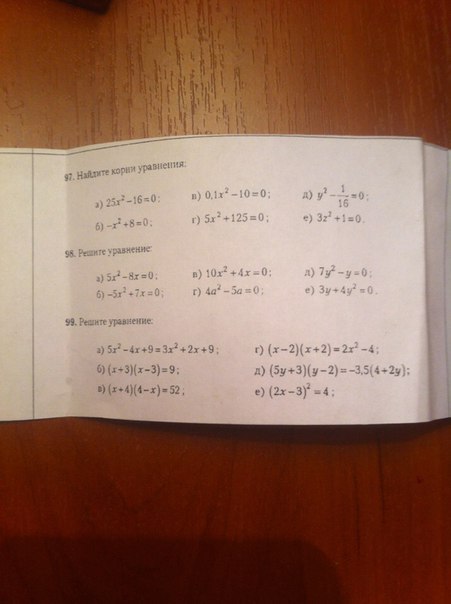 97. Найдите корни уравнения:
а) 25x²−16=0; в) 0,1x²−10=0; д) y²−1/16=0;
б) −x²+8=0; г) 5x²+125=0; е) 3z²+1=0.
98. Решите уравнение:
а) 5x²−8x=0; в) 10x²+4x=0; д) 7y²−y=0;
б) −5x²+7x=0; г) 4a²−5a=0; е) 3y+4y²=0.
99. Решите уравнение:
а) 5x²−4x+9=3x²+2x+9; г) (x−2)(x+2)=2x²−4;
б) (x+3)(x−3)=9; д) (5y+3)(y−2)=−3,5(4+2y);
в) (x+4)(4−x)=52; е) (2x−3)²=4;